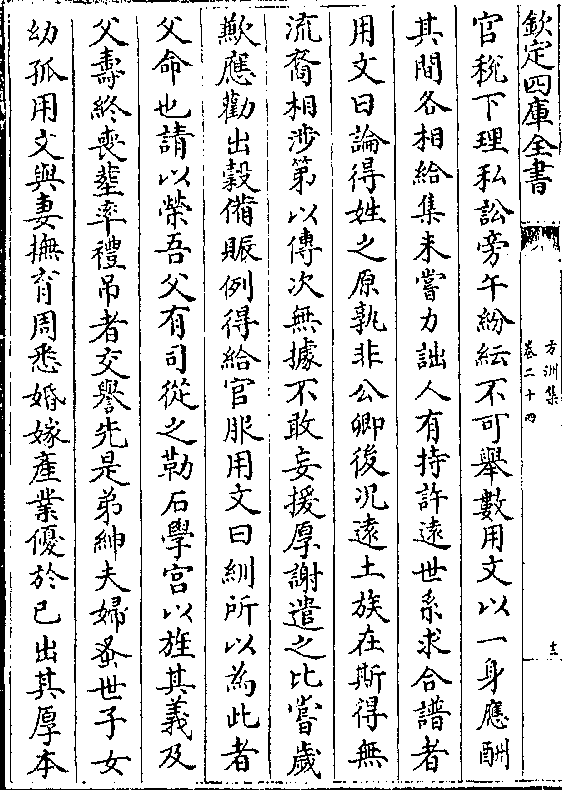 欽定四庫全書
方洲集
卷二十四
官稅下理私訟旁午紛紜不可舉數用文以一身應酬
其間各相給集未嘗力詘人有持許遠世系求合譜者
用文曰論得姓之原孰非公卿後况遠土族在斯得無
流裔相涉第以傳次無據不敢妄援厚謝遣之比嘗歲
歉應勸出穀備賑例得給官服用文曰紃所以為此者
父命也請以榮吾父有司從之勒石學宫以旌其義及
父壽終喪塟率禮吊者交譽先是弟紳夫婦蚤世子女
幼孤用文與妻撫育周悉婚嫁產業優於已出其厚本